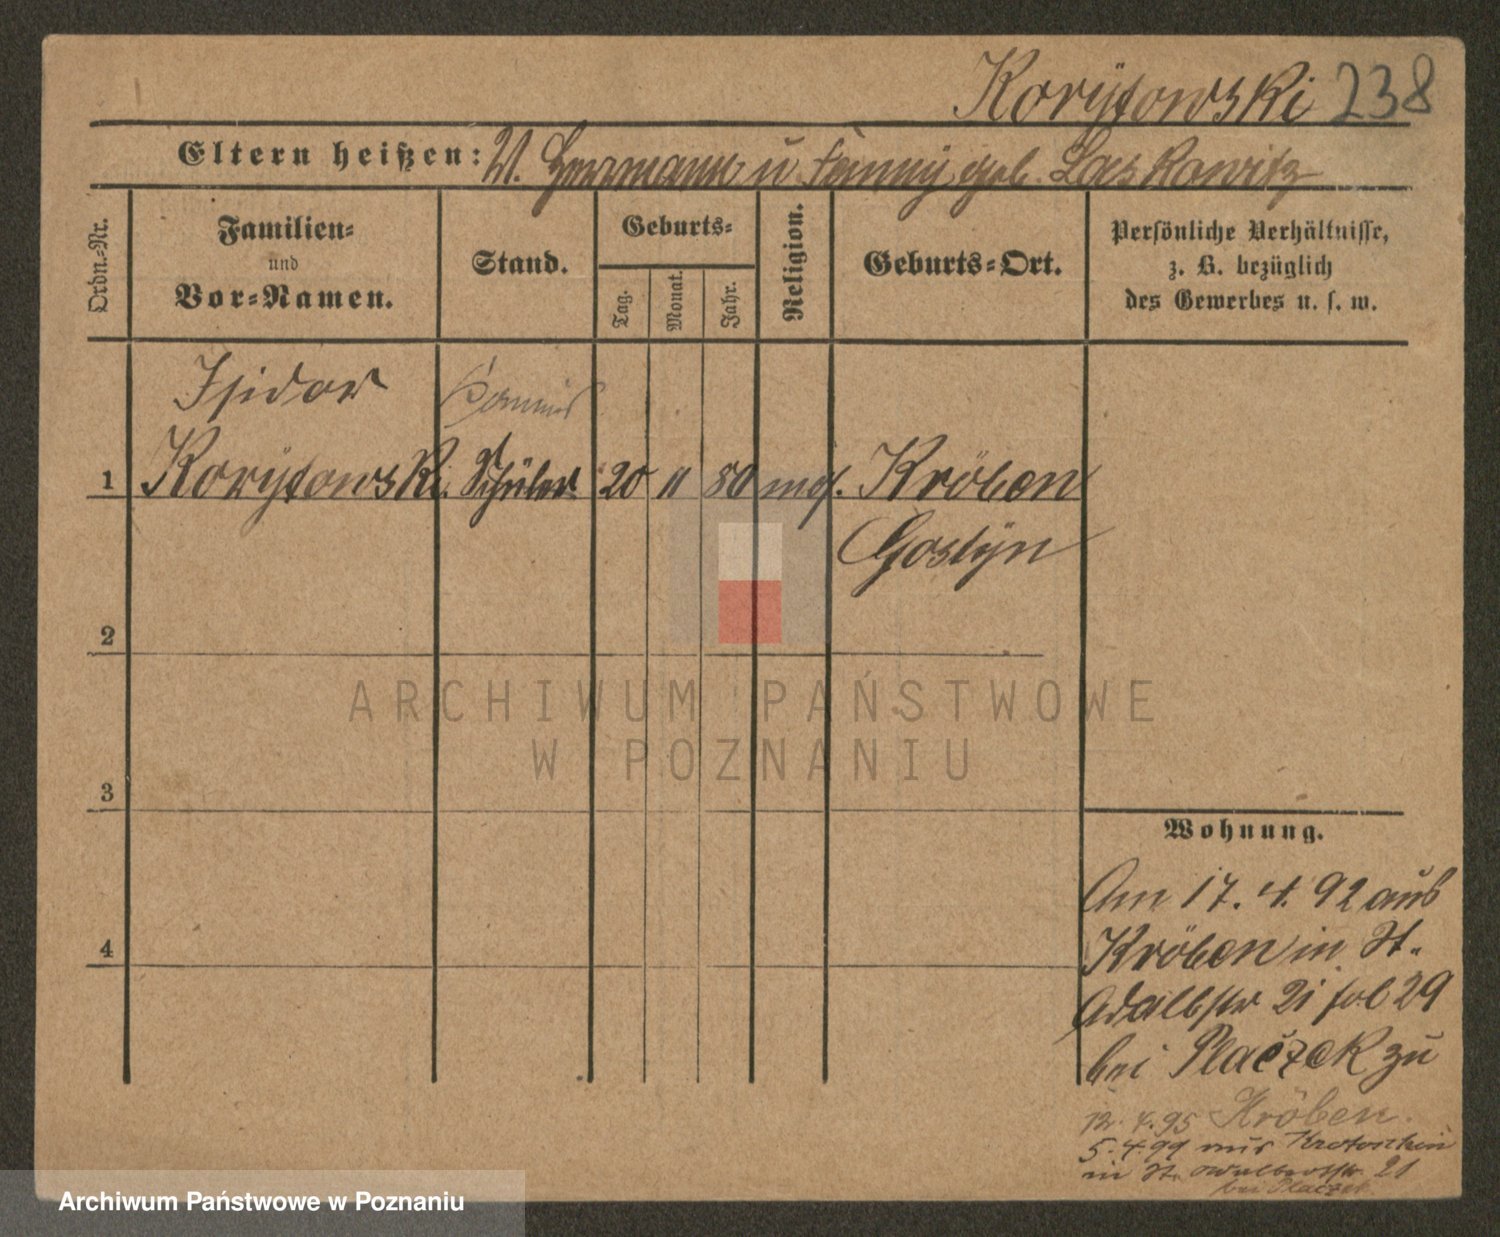 Korytowski 238
Eltern heißen: V. Herrmann u Fanny geb. Laskowitz
Ordn.-Nr.
Familien-
und
Vor-Namen.
Stand.
Geburts-
Tag.
Monat.
Jahr.
Religion.
Geburts-Ort.
Persönliche Verhältnisse,
z. B. bezüglich
des Gewerbes u. s. w.
Isidor
1 Korytowski. Schüler 20 11 80 mos. Kröben
Gostyn
2
3
4
ARCHIWUM PAŃSTWOWE
W POZNANIU
Wohnung.
Am 17. 4. 92 aus
Kröben in St.
Adalbstr 21 fol 29
bei Placzek zu
12. 4. 95 Kröben.
5. 4. 99 aus Krotoschin
in St. Adalbertstr. 21
bei Placzek
Archiwum Państwowe w Poznaniu